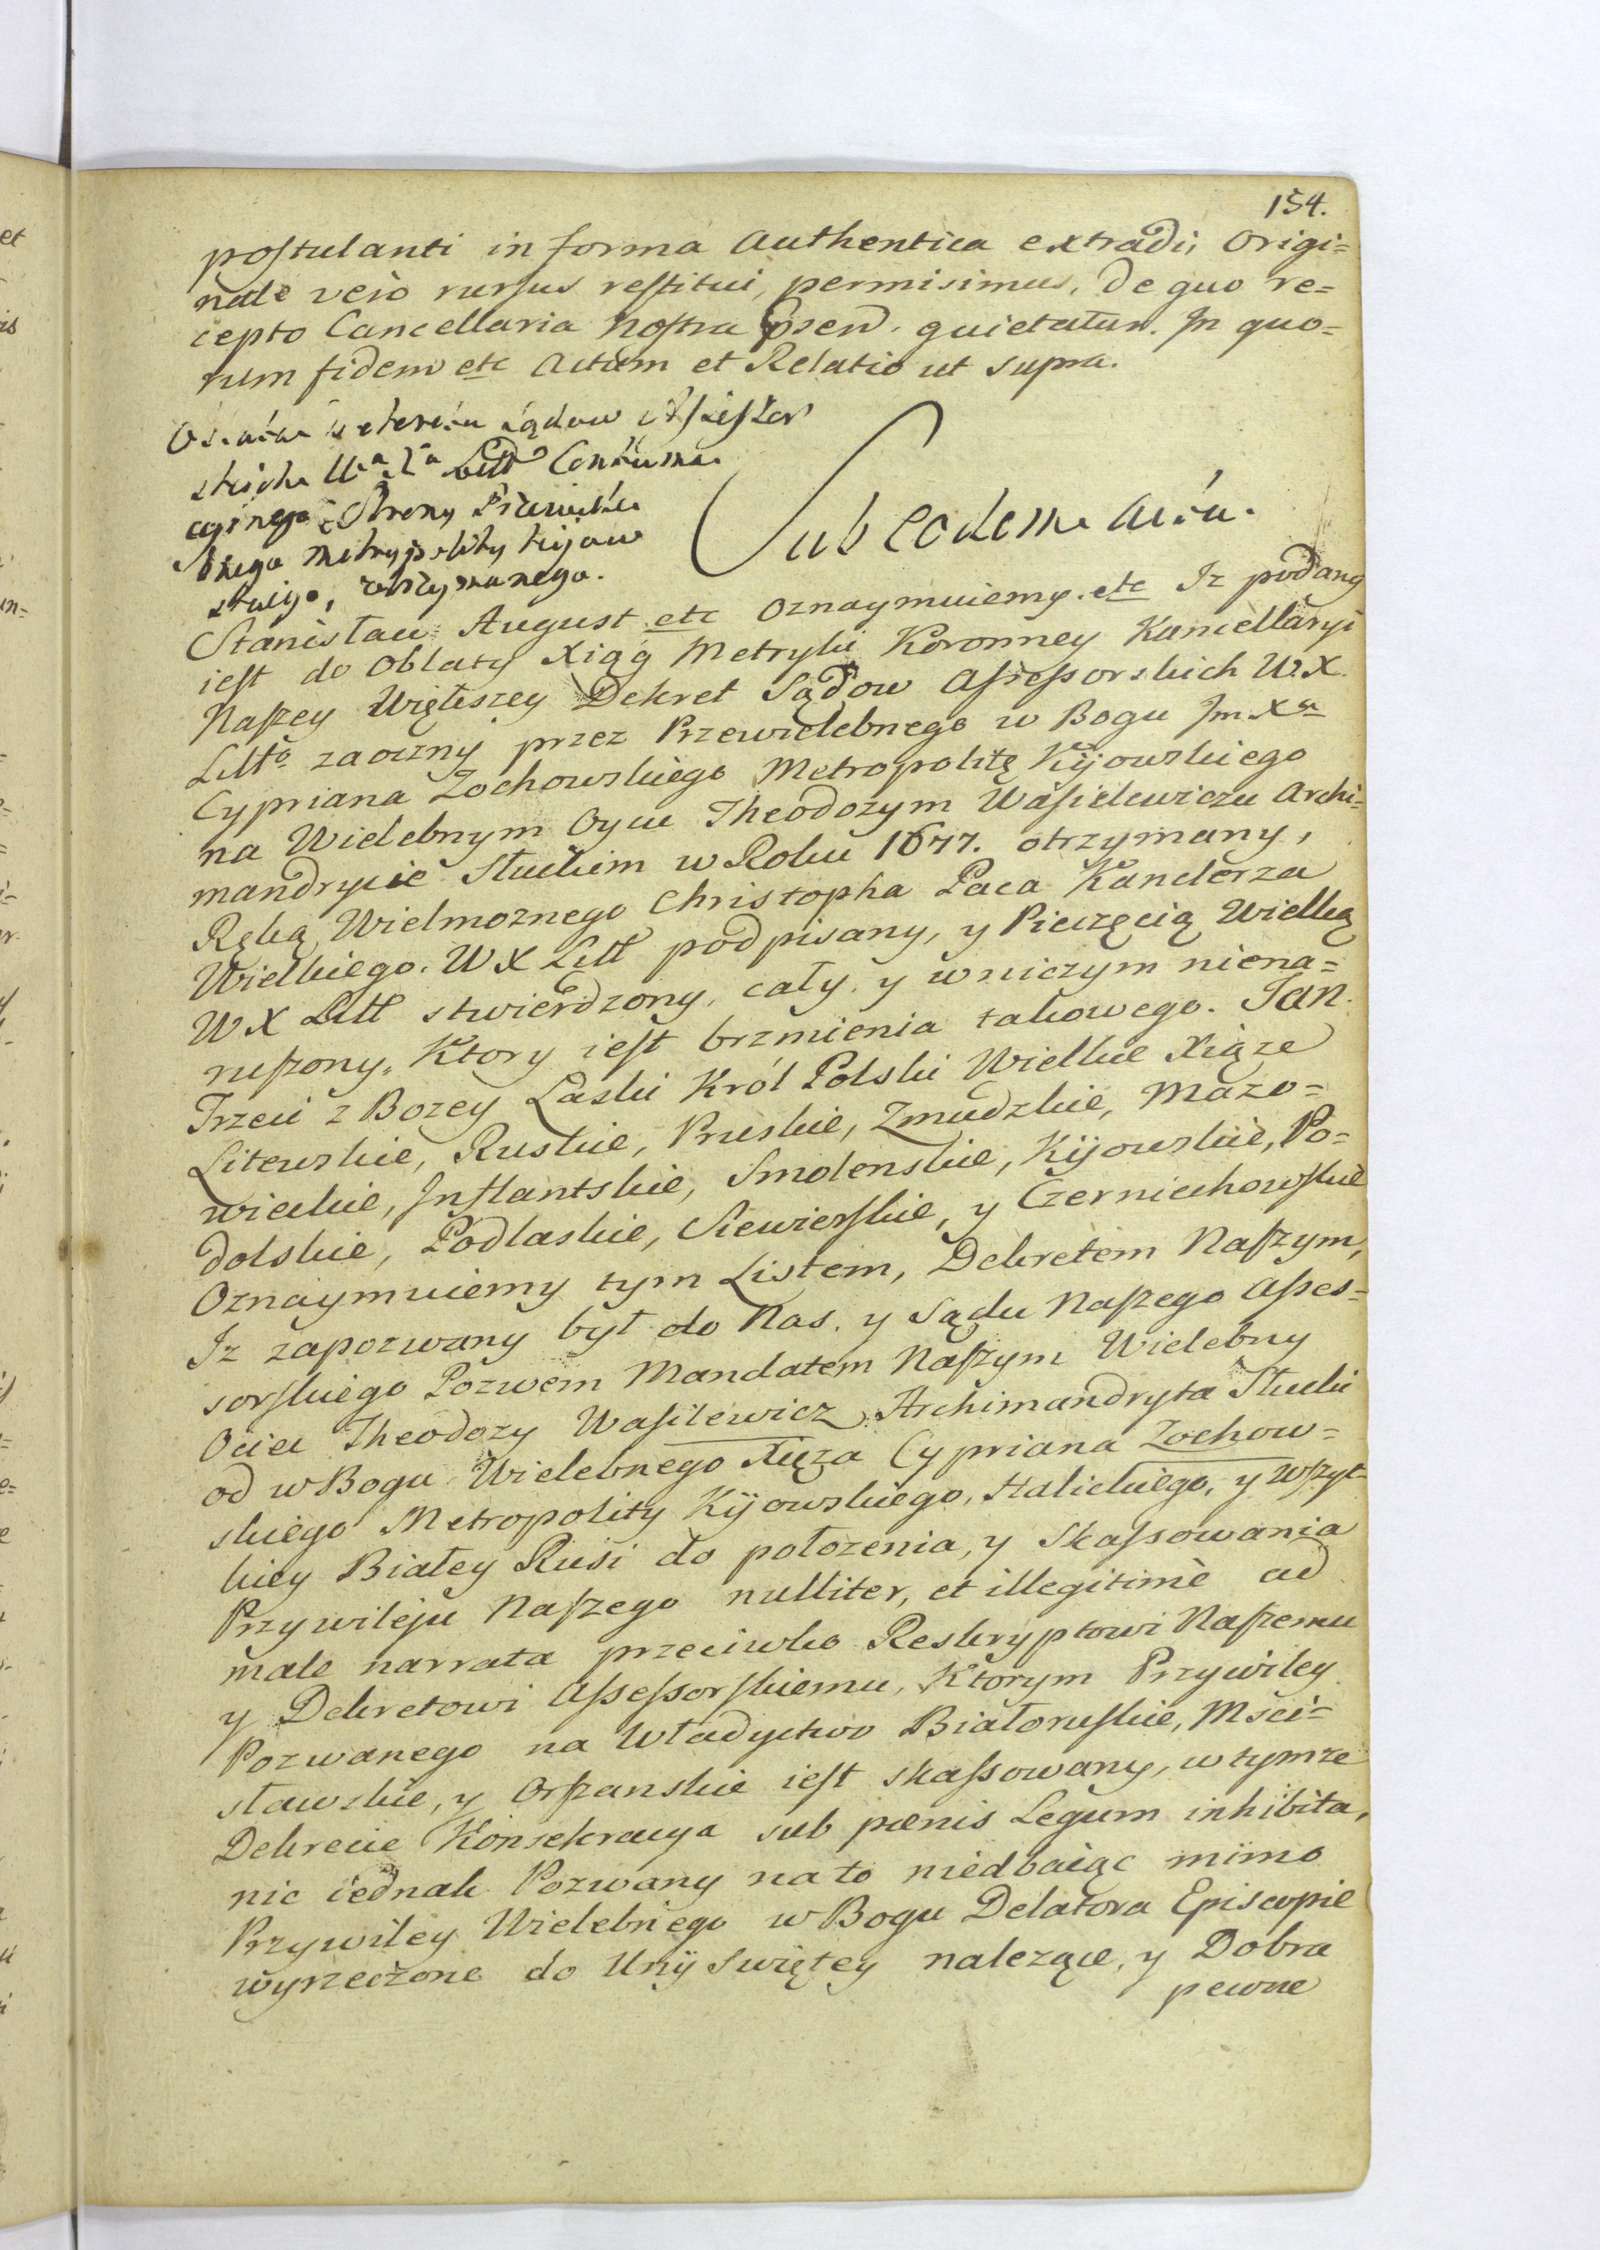 154.
postulanti in forma Authentica extradi, Origi=
nale verò rursus restitui, permisimus, De quo re=
cepto Cancellaria Nostra præsen. quietatur. In quo=
rum fidem etc Actum et Relatio ut supra.
Oblata Dekretu Sądow Assessor
skich W. X. Litt Contuma
cyinego z Strony Przewiele
bnego Metropolity Kijow
skiego, otrzymanego.
Sub eodem Actu.
Stanisław August etc Oznaymuiemy. etc Iz podany
iest do Oblaty Xiąg Metryki Koronney Kancellaryi
Naszey Większey Dekret Sądow Assessorskich W. X.
Litto zaoczny przez Przewielebnego w Bogu Jm. Xa
Cypriana Zochowskiego Metropolitę Kijowskiego
na Wielebnym Oycu Theodozym Wasilewiczu Archi=
mandrycie Słuckim w Roku 1677. otrzymany,
Ręką Wielmoznego Christopha Paca Kanclerza
Wielkiego. W X Litt podpisany, y Pieczęcią Wielką
W X Litt stwierdzony, cały, y w niczym niena=
ruszony, Ktory iest brzmienia takowego. Jan
Trzeci z Bozey Łaski Król Polski Wielkie Xiąze
Litewskie, Ruskie, Pruskie, Zmudzkie, Mazo=
wieckie, Inflantskie, Smolenskie, Kijowskie, Po=
dolskie, Podlaskie, Siewierskie, y Czerniechowskie
Oznaymuiemy tym Listem, Dekretem Naszym,
Iz zapozwany był do Nas. y Sądu Naszego Asses=
sorskiego Pozwem Mandatem Naszym Wielebny
Ociec Theodozy Wasilewicz Archimandryta Słucki
od w Bogu Wielebnego Xięza Cypriana Zochow=
skiego Metropolity Kijowskiego, Halickiego, y wszyt=
kiey Białey Rusi do połozenia, y Skassowania
Przywileju Naszego nulliter, et illegitimè ad
male narrata przeciwko Reskryptowi Naszemu
y Dekretowi Assessorskiemu, Ktorym Przywiley
Pozwanego na Władyctwo Białoruskie, Mści=
sławskie, y Orszanskie iest skassowany, w tymze
Dekrecie Konsekracya sub pænis Legum inhibita,
nic iednak Pozwany na to niedbaiąc mimo
Przywiley Wielebnego w Bogu Delatora Episcopie
wyrzeczone do Unij Swiętey nalezące, y Dobra
pewne